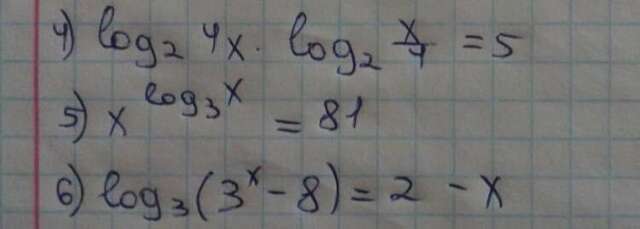 4) log₂ 4x · log₂ x/4 = 5
5) x^log₃x = 81
6) log₃(3ˣ - 8) = 2 - x